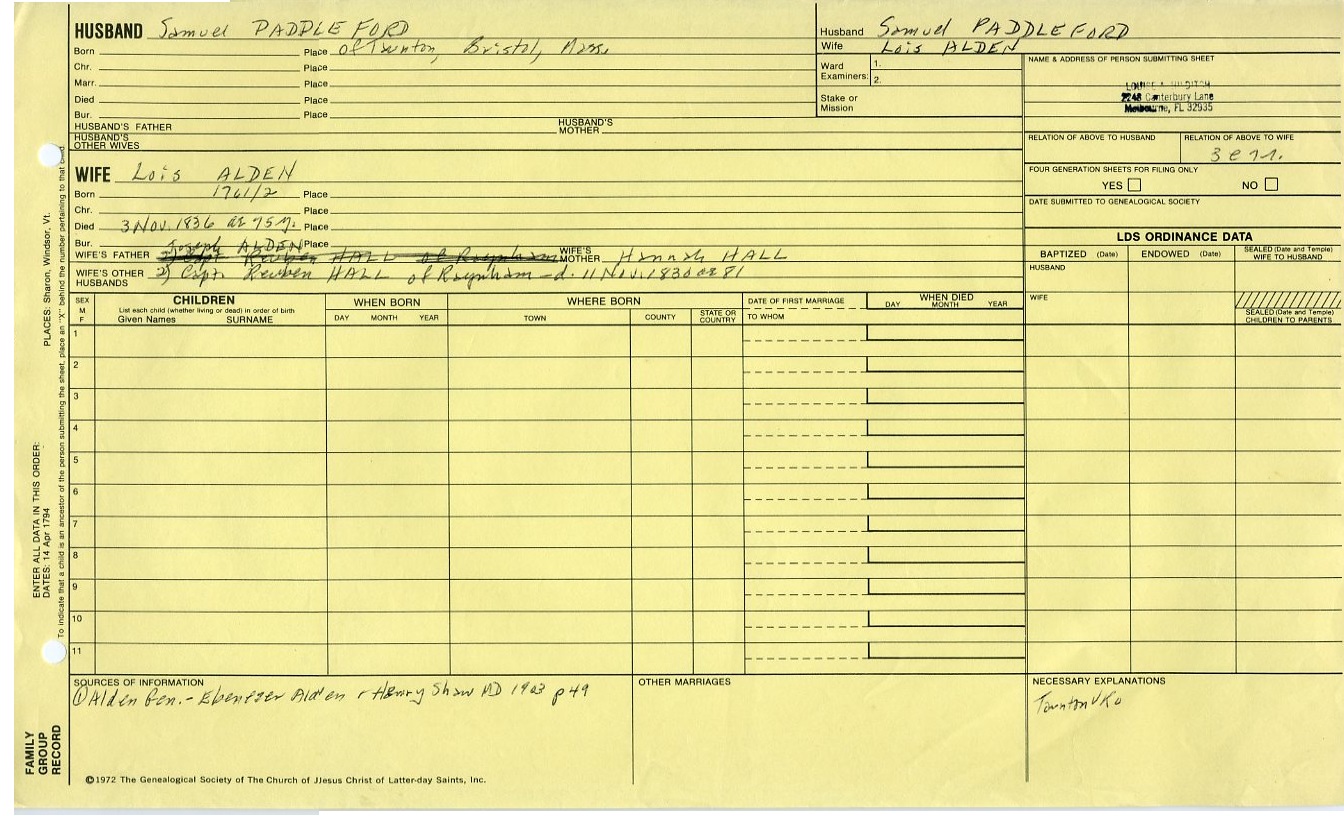 HUSBAND Samuel PADDLEFORD
Born Place of Taunton, Bristol, Mass.
Chr. Place
Marr. Place
Died Place
Bur. Place
HUSBAND'S FATHER HUSBAND'S MOTHER
HUSBAND'S OTHER WIVES
Husband Samuel PADDLEFORD
Wife Lois ALDEN
Ward Examiners: 1.
2.
Stake or Mission
NAME & ADDRESS OF PERSON SUBMITTING SHEET
2248 Canterbury Lane
Melbourne, FL 32935
RELATION OF ABOVE TO HUSBAND RELATION OF ABOVE TO WIFE
FOUR GENERATION SHEETS FOR FILING ONLY
YES NO
DATE SUBMITTED TO GENEALOGICAL SOCIETY
WIFE Lois ALDEN
Born 1761/2 Place
Chr. Place
Died 3 Nov. 1836 ae 75 y. Place
Bur. Place
Joseph ALDEN
WIFE'S FATHER 2) Capt. Reuben HALL of Raynham WIFE'S MOTHER Hannah HALL
WIFE'S OTHER HUSBANDS 2) Capt. Reuben HALL of Raynham - d. 11 Nov. 1830 ae 81
LDS ORDINANCE DATA
BAPTIZED (Date) ENDOWED (Date) SEALED (Date and Temple) WIFE TO HUSBAND
HUSBAND
WIFE
SEALED (Date and Temple) CHILDREN TO PARENTS
SEX M F
CHILDREN
List each child (whether living or dead) in order of birth
Given Names SURNAME
WHEN BORN
DAY MONTH YEAR
WHERE BORN
TOWN COUNTY STATE OR COUNTRY
DATE OF FIRST MARRIAGE
TO WHOM
WHEN DIED
DAY MONTH YEAR
1
2
3
4
5
6
7
8
9
10
11
SOURCES OF INFORMATION
① Alden Gen. - Ebenezer Alden + Henry Shaw MD 1903 p 49
OTHER MARRIAGES
NECESSARY EXPLANATIONS
Taunton VR
©1972 The Genealogical Society of The Church of JJesus Christ of Latter-day Saints, Inc.
ENTER ALL DATA IN THIS ORDER:
DATES: 14 Apr 1794 PLACES: Sharon, Windsor, Vt.
To indicate that a child is an ancestor of the person submitting the sheet, place an "X" behind the number pertaining to that
FAMILY
GROUP
RECORD